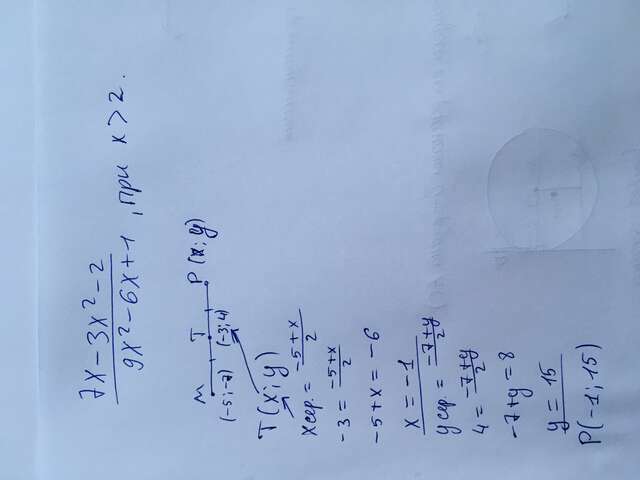 7x - 3x² - 2
9x² - 6x + 1 , при x > 2.
M T P (x; y)
(-5; -7) (-3; 4)
T (x; y)
x сер. = -5 + x / 2
-3 = -5 + x / 2
-5 + x = -6
x = -1
y сер = -7 + y / 2
4 = -7 + y / 2
-7 + y = 8
y = 15
P(-1; 15)